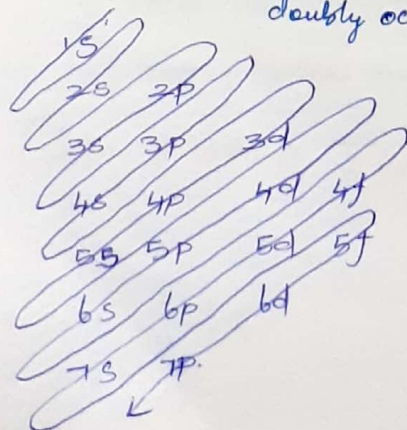 doubly oc
1s
2s 2p
3s 3p 3d
4s 4p 4d 4f
5s 5p 5d 5f
6s 6p 6d
7s 7p.